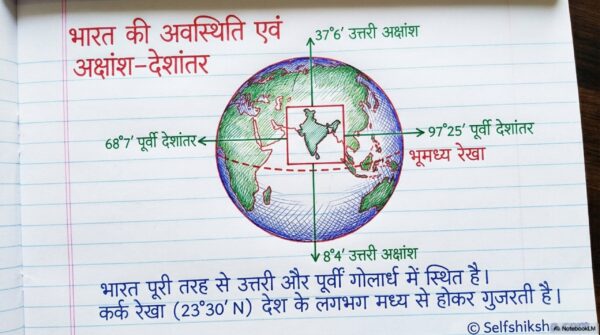 भारत की अवस्थिति एवं
अक्षांश-देशांतर
37°6' उत्तरी अक्षांश
68°7' पूर्वी देशांतर
97°25' पूर्वी देशांतर
भूमध्य रेखा
8°4' उत्तरी अक्षांश
भारत पूरी तरह से उत्तरी और पूर्वी गोलार्ध में स्थित है।
कर्क रेखा (23°30' N) देश के लगभग मध्य से होकर गुजरती है।
© Selfshiksh
NotebookLM